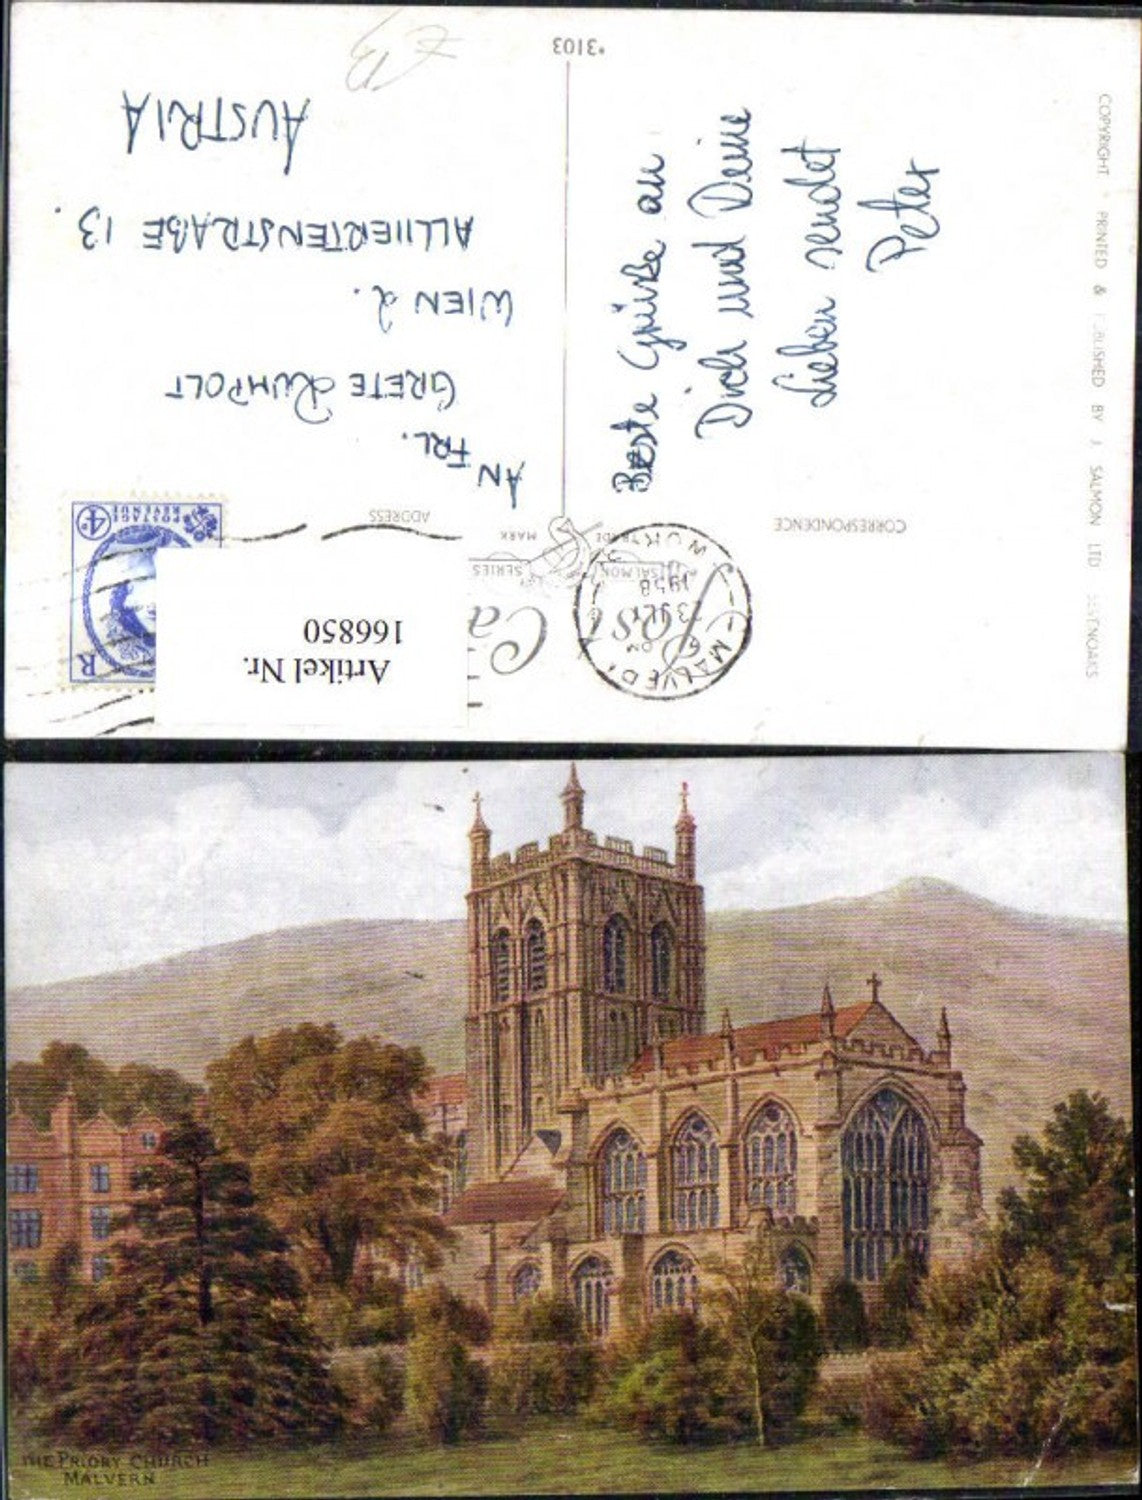 *3103
Post Ca
SALMON SERIES
TRADE MARK
CORRESPONDENCE
ADDRESS
POSTAGE
REVENUE
4D
R
MALVERN
1958
Artikel Nr.
166850
AN
FRL.
GRETE RUMPOLT
WIEN 2.
ALLIIERTENSTRAßE 13.
AUSTRIA
Beste Grüße an
Dich und Deine
Lieben sendet
Peter
COPYRIGHT PRINTED & PUBLISHED BY J SALMON LTD SEVENOAKS
THE PRIORY CHURCH
MALVERN